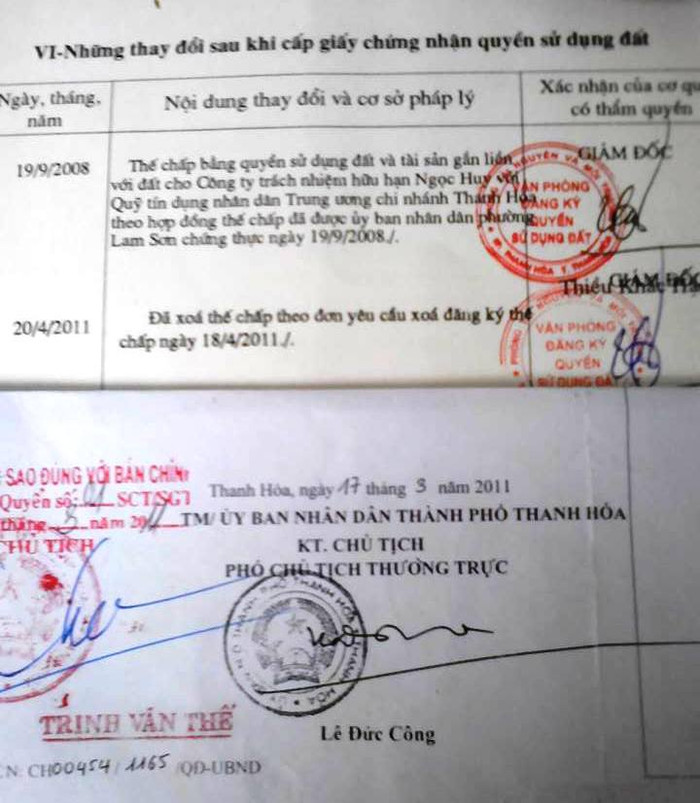 VI-Những thay đổi sau khi cấp giấy chứng nhận quyền sử dụng đất
Ngày, tháng, năm
Nội dung thay đổi và cơ sở pháp lý
Xác nhận của cơ qu
có thẩm quyền
19/9/2008
Thế chấp bằng quyền sử dụng đất và tài sản gắn liền
với đất cho Công ty trách nhiệm hữu hạn Ngọc Huy với
Quỹ tín dụng nhân dân Trung ương chi nhánh Thanh Hóa
theo hợp đồng thế chấp đã được ủy ban nhân dân phường
Lam Sơn chứng thực ngày 19/9/2008./.
GIÁM ĐỐC
VĂN PHÒNG
ĐĂNG KÝ
QUYỀN
SỬ DỤNG ĐẤT
Thiều
GIÁM ĐỐC
20/4/2011
Đã xoá thế chấp theo đơn yêu cầu xoá đăng ký thế
chấp ngày 18/4/2011./.
VĂN PHÒNG
ĐĂNG KÝ
QUYỀN
SỬ DỤNG ĐẤ
SAO ĐÚNG VỚI BẢN CHÍN
Quyển số: 01 SCT/SGT
tháng 5 năm 20
CHỦ TỊCH
TRỊNH VĂN THẾ
Thanh Hóa, ngày 17 tháng 3 năm 2011
TM/ ỦY BAN NHÂN DÂN THÀNH PHỐ THANH HÓA
KT. CHỦ TỊCH
PHÓ CHỦ TỊCH THƯỜNG TRỰC
Lê Đức Công
CN: CH00454/1165/QĐ-UBND